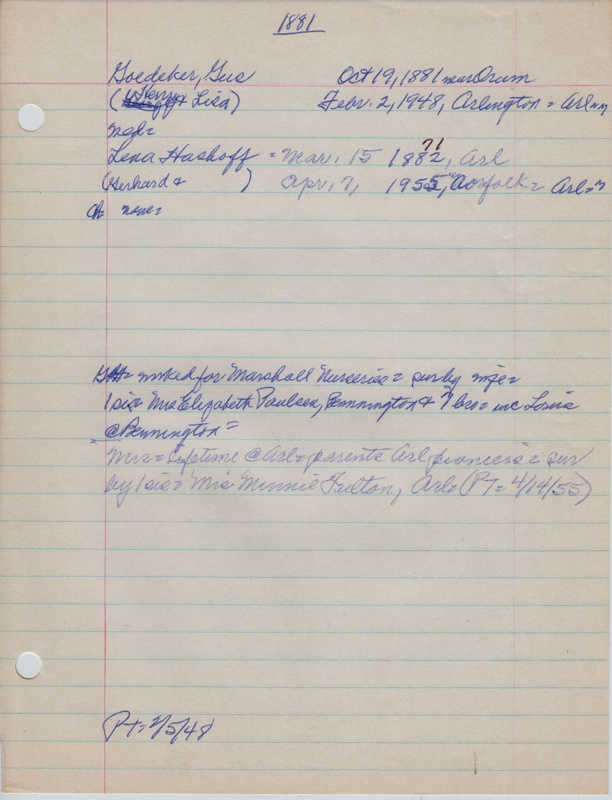 1881
Goedeker, Gus Oct 19, 1881 near Orum
(Henry & Lisa) Febr. 2, 1948, Arlington = Arl
med=
71
Lena Hashoff = Mar. 15 1882, Arl
(Gerhard & ) Apr. 7, 1955, Norfolk = Arl=
Ch none=
worked for Marshall Nurseries = sur by wife=
1 sis Mrs Elizabeth Paulsen, Bennington & 7 bro= inc Louis
@Bennington=
Mrs= lifetime @Arl= parents Arl pioneers= sur
by 1 sis= Mrs Minnie Fulton, Arl= (PT=4/14/55)
PT=2/5/48